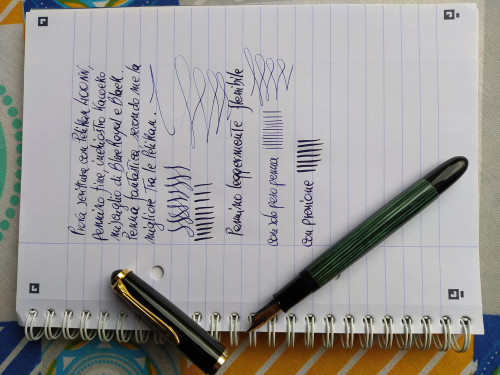 Prova scrittura con Pelikan 400NN,
pennino fine, inchiostro Kaweco
miscuglio di Blue Royal e Black.
Penna fantastica, secondo me la
migliore tra le Pelikan.
Pennino leggermente flessibile
con solo peso penna
con pressione